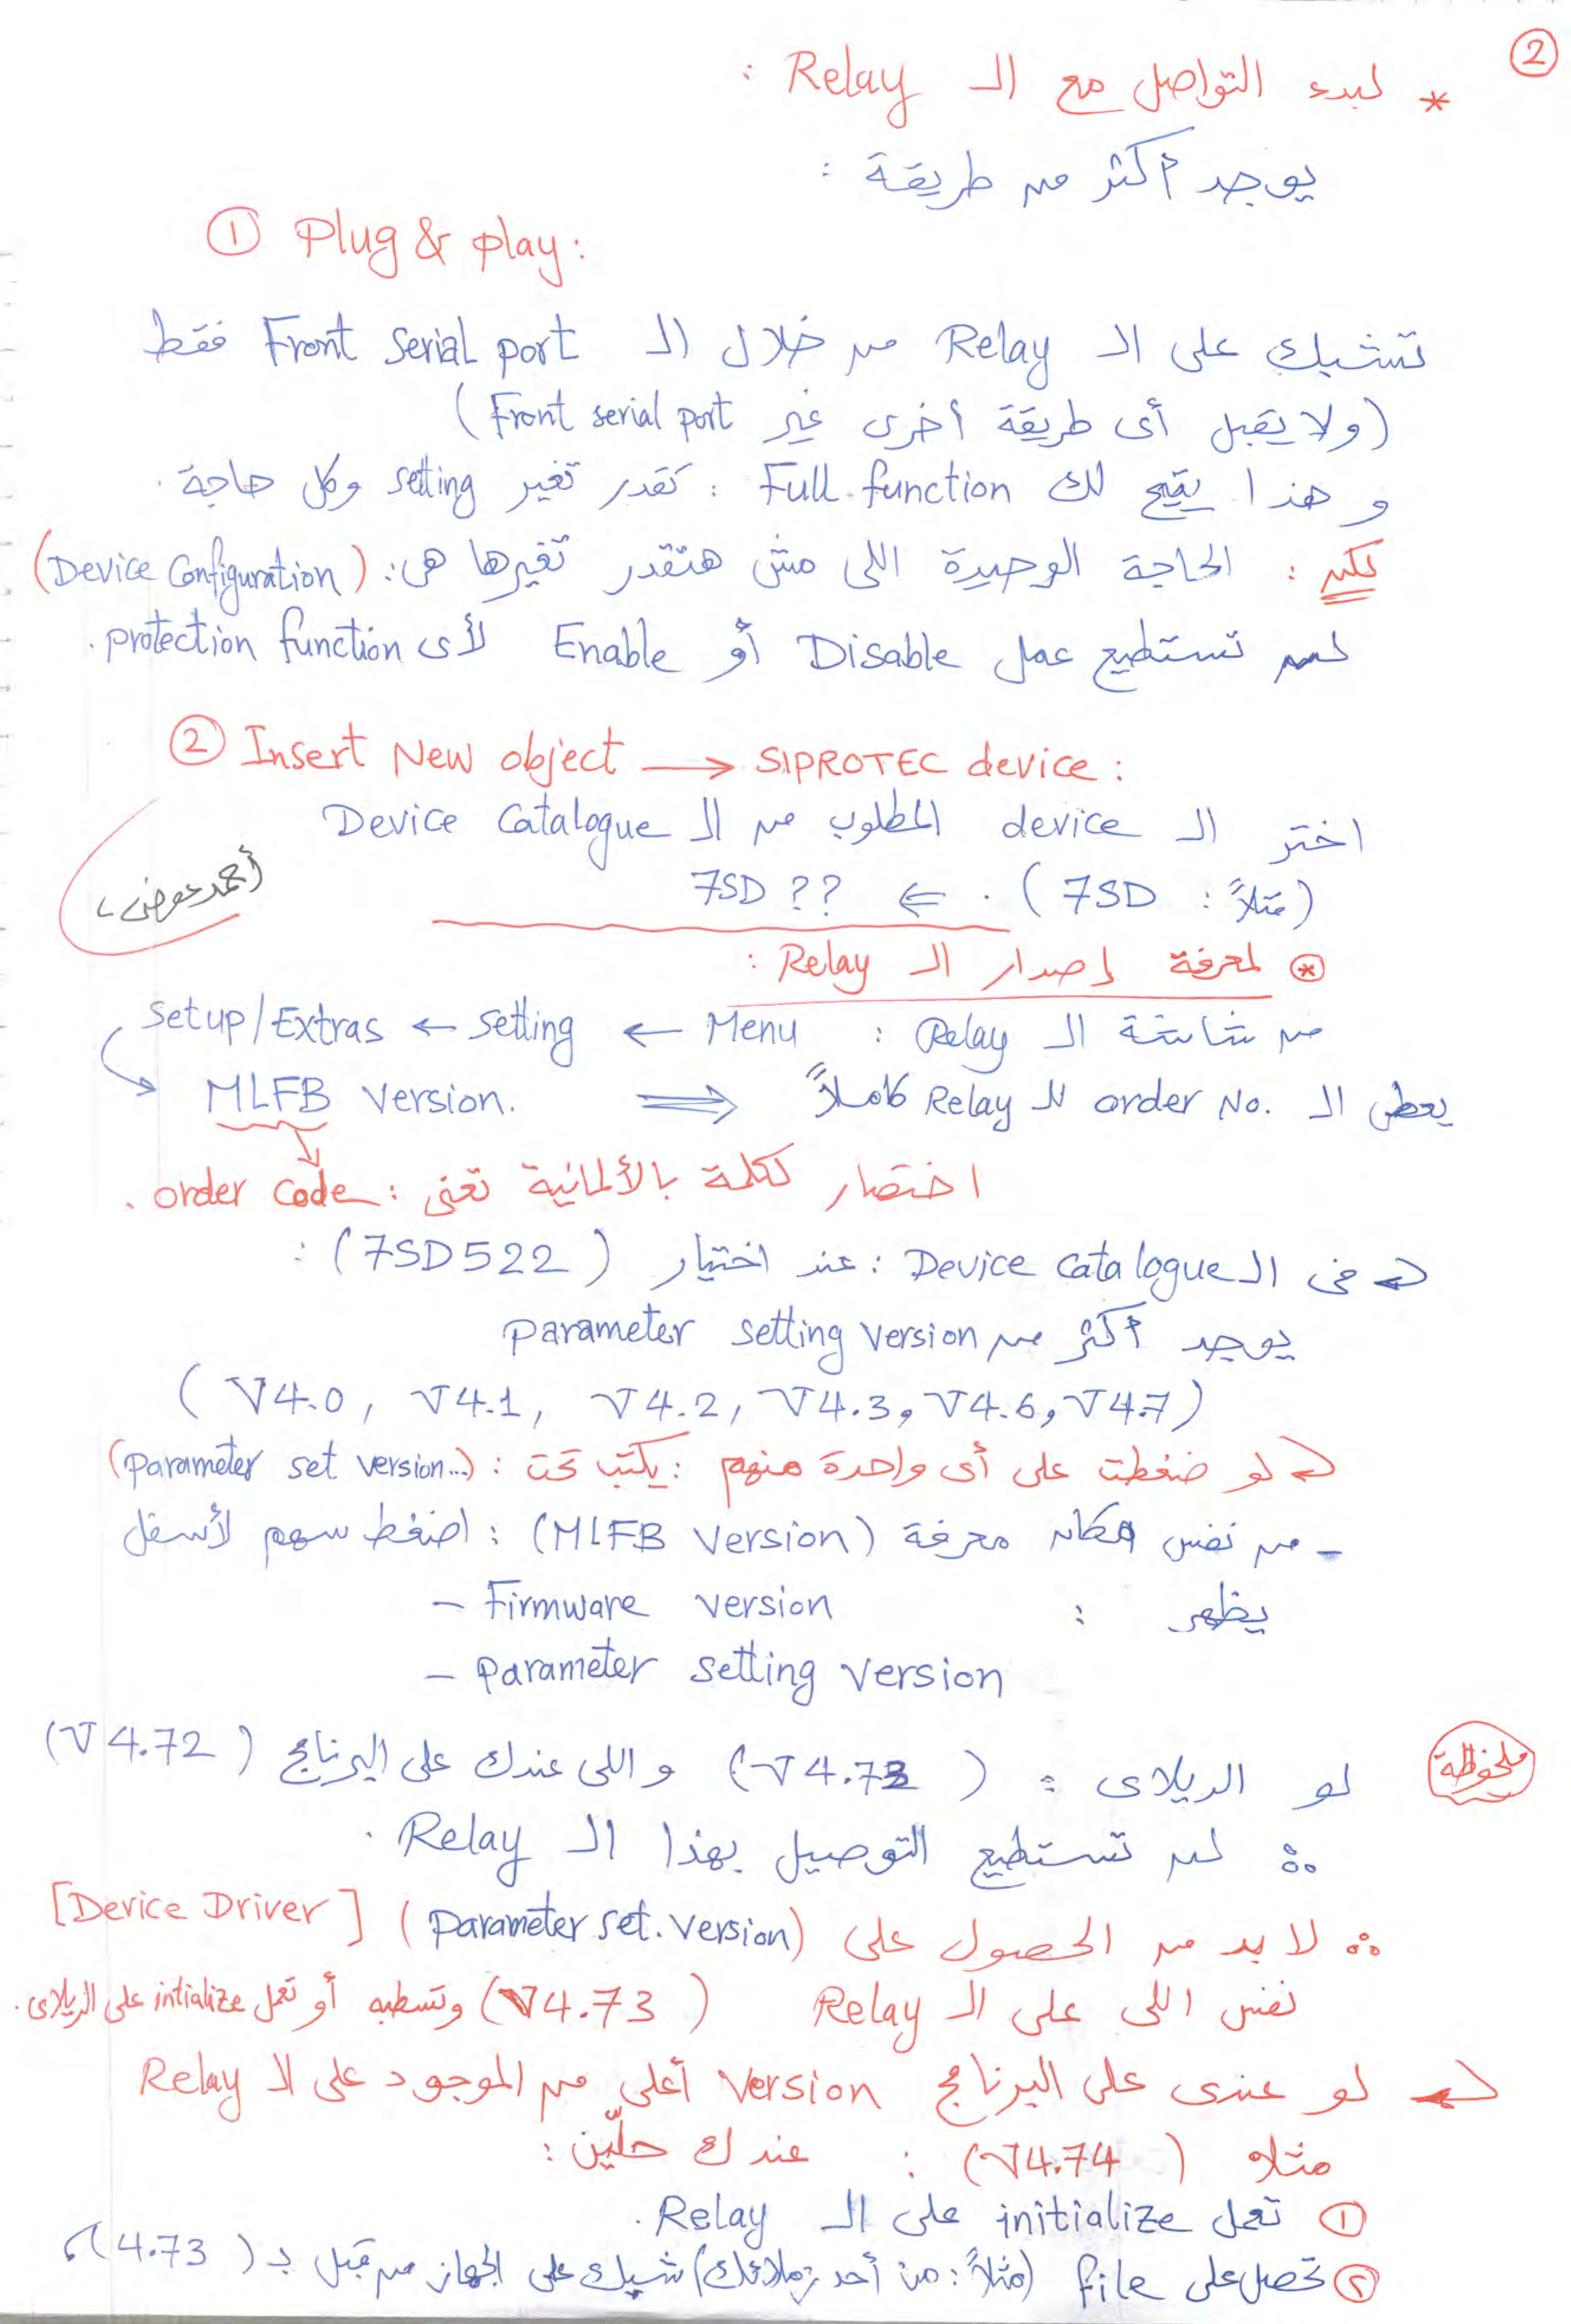 ②
* لبدء التواصل مع الـ Relay :
يوجد أكثر من طريقة :
① Plug & play :
تشبك على الـ Relay من خلال الـ Front Serial port فقط
(ولا يقبل أى طريقة أخرى غير Front serial port)
و هذا يتيح لك Full function : تقدر تغير setting وكل حاجة .
لكن : الحاجة الوحيدة اللى مش هتقدر تغيرها هى : (Device Configuration)
لن تستطيع عمل Disable أو Enable لأى protection function .
② Insert New object → SIPROTEC device :
اختر الـ device المطلوب من الـ Device Catalogue
(مثلاً : 7SD) . ⇐ 7SD ??
أحمد عوض
⊛ لمعرفة إصدار الـ Relay :
من شاشة الـ Relay : Menu ← setting ← Setup/Extras
MLFB Version. ⇒ يعطى الـ order No. للـ Relay كاملاً
اختصار لكلمة بالألمانية تعنى : order code .
⇐ فى الـ Device catalogue : عند اختيار (7SD522) :
يوجد أكثر من parameter setting version
(V4.0, V4.1, V4.2, V4.3, V4.6, V4.7)
⇐ لو ضغطت على أى واحدة منهم : يكتب تحت : (parameter set version...)
- من نفس مكان معرفة (MLFB Version) : اضغط سهم لأسفل
يظهر : - Firmware version
- parameter setting version
ملحوظة لو الريلاى : (V4.73) و اللى عندك على البرنامج (V4.72)
∴ لن تستطيع التوصيل بهذا الـ Relay .
∴ لا بد من الحصول على (parameter set. version) [Device Driver]
نفس اللى على الـ Relay (V4.73) وتسطبه أو تعمل intialize على الريلاى .
⇐ لو عندى على البرنامج Version أعلى من الموجود على الـ Relay
مثلا (V4.74) : عندك حلّين :
① تعمل initialize على الـ Relay .
② تحصل على file (مثلاً : من أحد زملائك) شبك على الجهاز من قبل بـ (4.73)